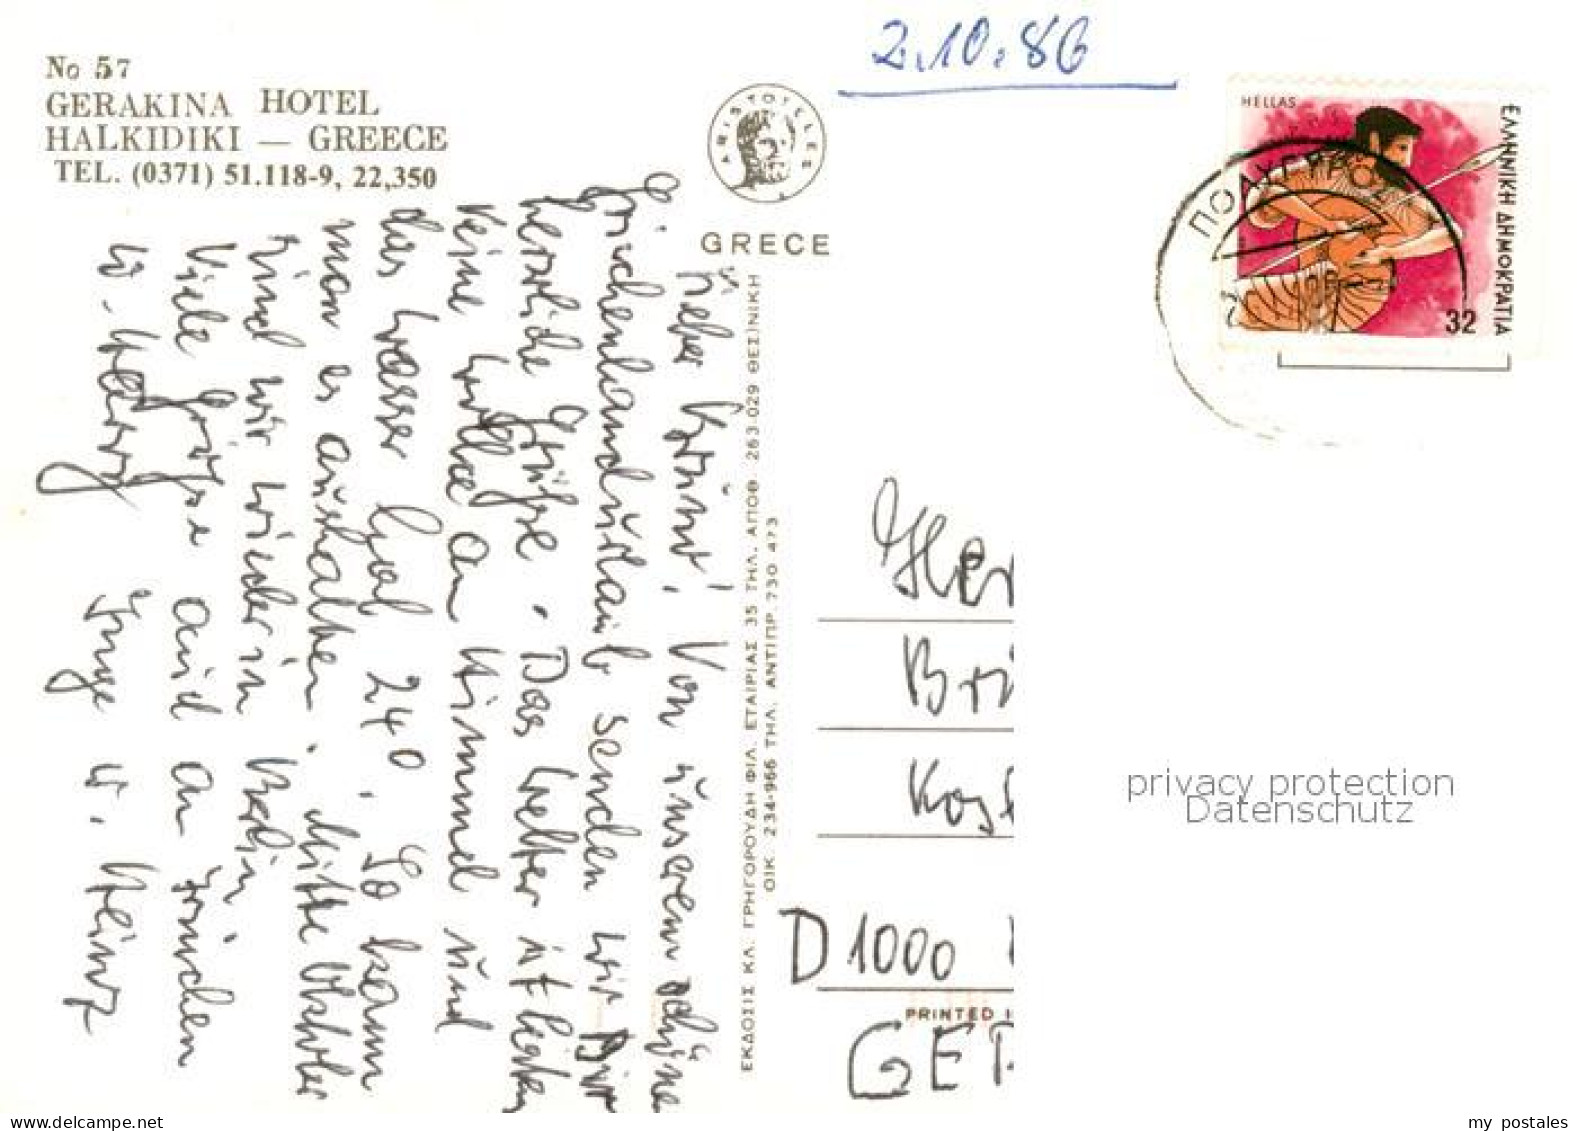 No 57
GERAKINA HOTEL
HALKIDIKI — GREECE
TEL. (0371) 51.118-9, 22,350
2.10.86
ARISTOTELES
GRECE
HELLAS
ΕΛΛΗΝΙΚΗ ΔΗΜΟΚΡΑΤΙΑ
32
ΠΟΛΥΓΥΡΟΣ
Lieber Von unserem schönen
Griechenlandurlaub senden wir Dir
herzliche Grüße. Das Wetter ist
keine Wolke am Himmel und
das Wasser hat 24°. So kann
man es aushalten. Mitte Oktober
sind wir wieder in Berlin
Viele Grüße auch an
Inge u. Heinz
ΕΚΔΟΣΙΣ ΚΛ. ΓΡΗΓΟΡΟΥΔΗ ΦΙΛ. ΕΤΑΙΡΙΑΣ 35 ΤΗΛ. ΑΠΟΘ. 263-029 ΘΕΣ)ΝΙΚΗ
ΟΙΚ. 234-966 ΤΗΛ. ΑΝΤΙΠΡ. 730 473
Her
Bri
Kost
D 1000
PRINTED I
GER
privacy protection
Datenschutz
my postales